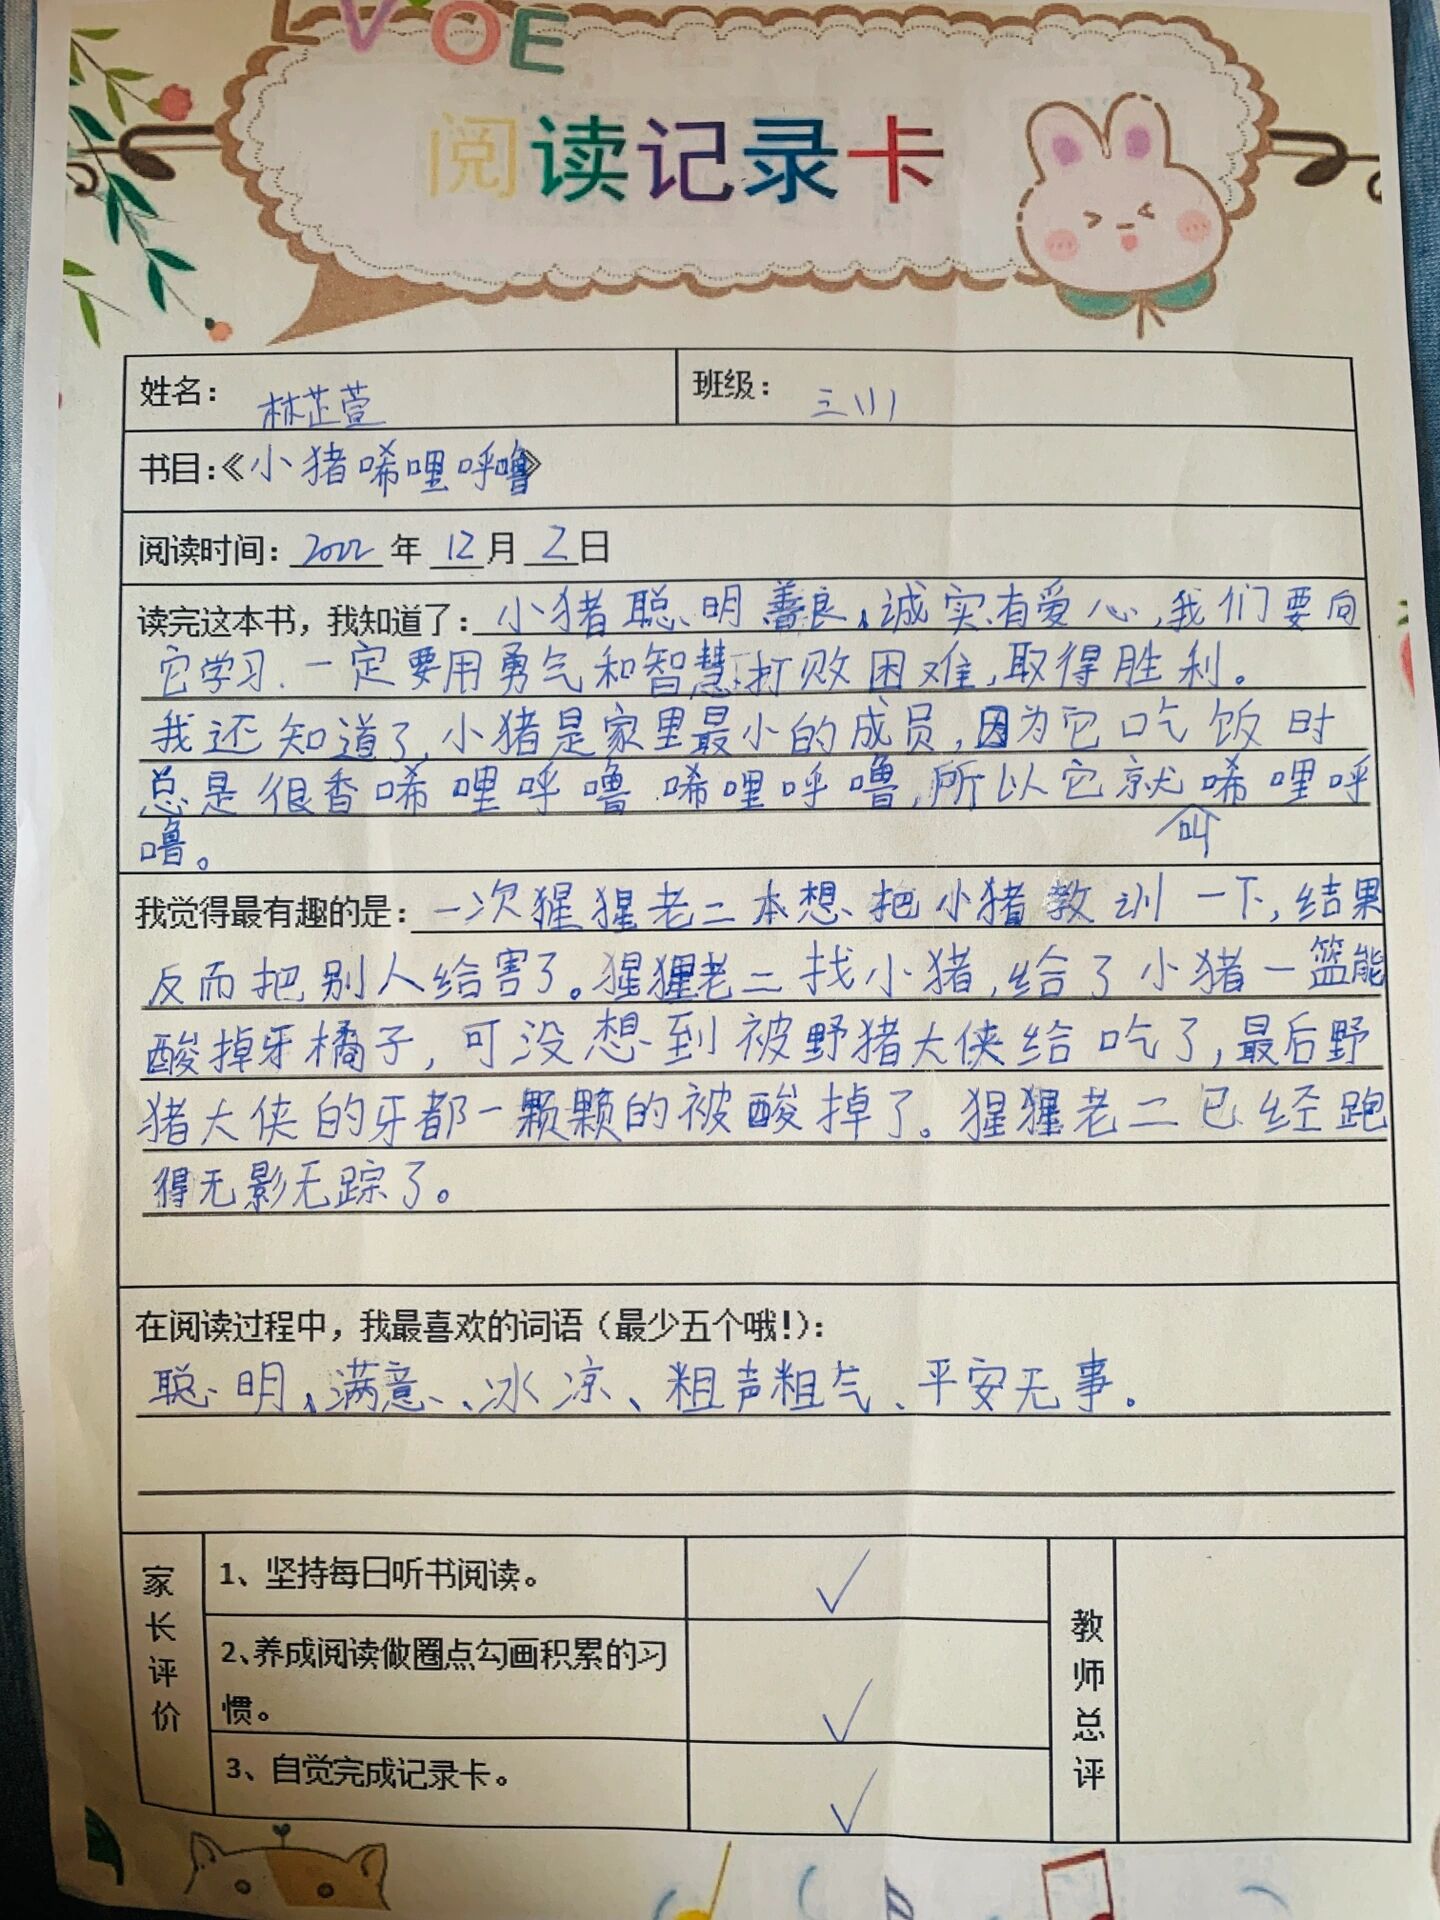 LVOE
阅读记录卡
姓名： 林芷萱 班级： 三（1）
书目：《小猪唏哩呼噜》
阅读时间：2022年12月2日
读完这本书，我知道了：小猪聪明善良、诚实有爱心，我们要向
它学习、一定要用勇气和智慧打败困难，取得胜利。
我还知道了，小猪是家里最小的成员，因为它吃饭时
总是很香唏哩呼噜 唏哩呼噜，所以它就叫唏哩呼
噜。
我觉得最有趣的是：一次猩猩老二本想把小猪教训一下，结果
反而把别人给害了。猩猩老二找小猪，给了小猪一篮能
酸掉牙橘子，可没想到被野猪大侠给吃了，最后野
猪大侠的牙都一颗颗的被酸掉了。猩猩老二已经跑
得无影无踪了。
在阅读过程中，我最喜欢的词语（最少五个哦！）：
聪明、满意、冰凉、粗声粗气、平安无事。
家长评价
1、坚持每日听书阅读。 ✓
2、养成阅读做圈点勾画积累的习
惯。 ✓
3、自觉完成记录卡。 ✓
教师总评